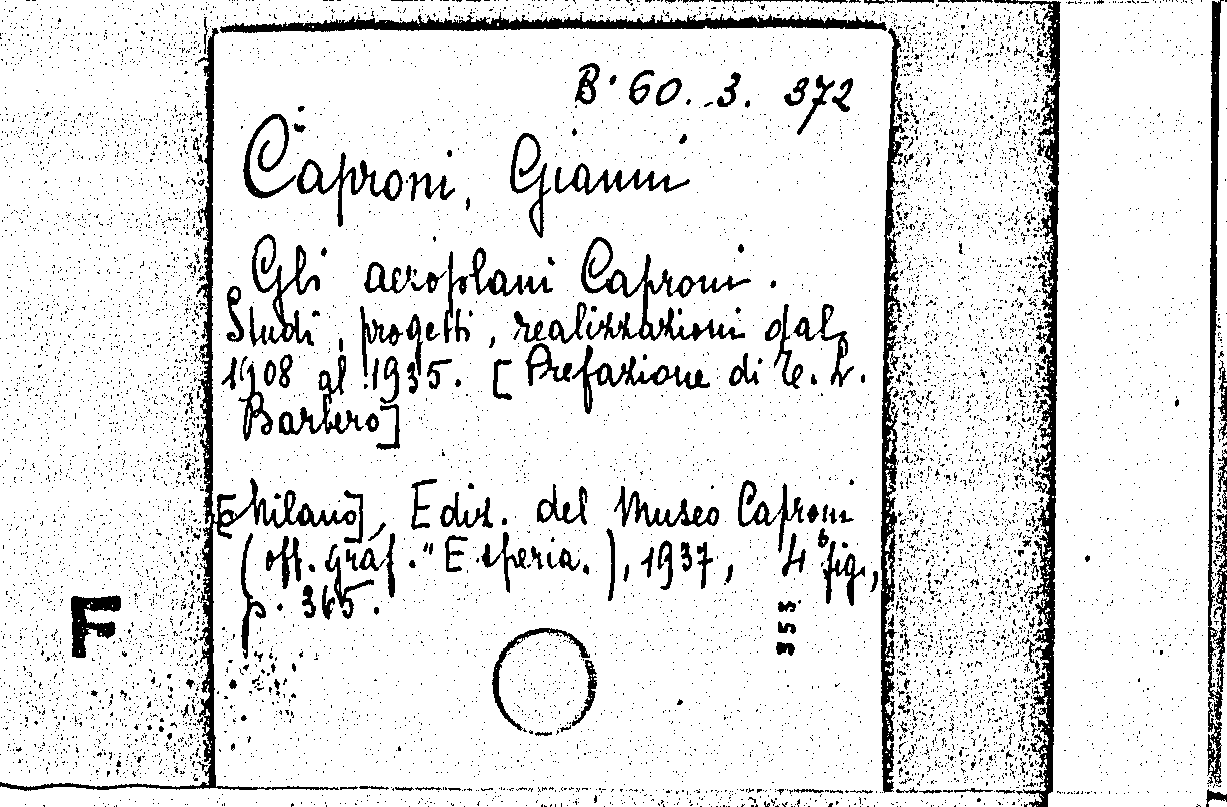 B. 60. 3. 372
Caproni, Gianni
Gli aeroplani Caproni.
Studi, progetti, realizzazioni dal
1908 al 1935. [Prefazione di T. L.
Barbero]
[Milano], Ediz. del Museo Caproni
(off. graf. "Esperia.), 1937, 4° fig.,
p. 365.
F
353